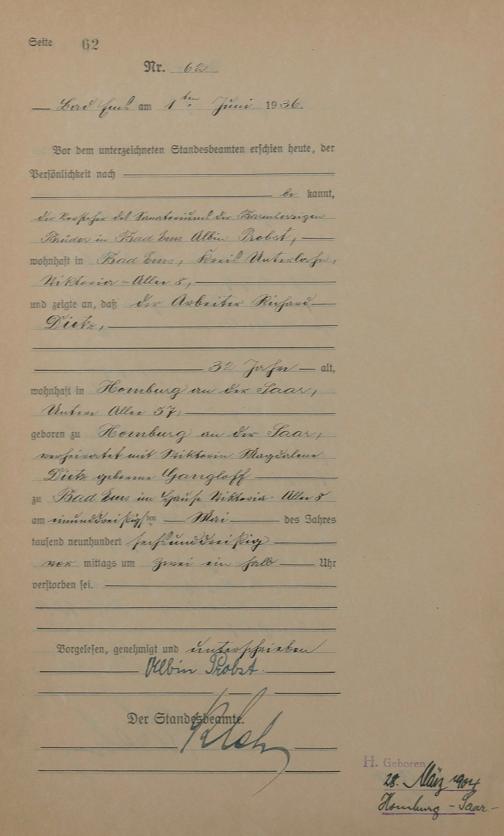 Seite 62
Nr. 62
Bad Ems am 1ten Juni 1936.
Vor dem unterzeichneten Standesbeamten erschien heute, der
Persönlichkeit nach
be kannt,
der Vorsteher des Sanatoriums der Barmherzigen
Brüder in Bad Ems Albin Probst,
wohnhaft in Bad Ems, Kreis Unterlahn,
Viktoria-Allee 5,
und zeigte an, daß der Arbeiter Richard
Dietz,
32 Jahre alt,
wohnhaft in Homburg an der Saar,
Untere Allee 57,
geboren zu Homburg an der Saar,
verheiratet mit Viktoria Magdalene
Dietz geborene Gangloff
zu Bad Ems im Hause Viktoria-Allee 5
am einunddreißigsten Mai des Jahres
tausend neunhundert sechsunddreißig
vor mittags um zwei ein halb Uhr
verstorben sei.
Vorgelesen, genehmigt und unterschrieben
Albin Probst.
Der Standesbeamte.
H. Geboren
28. März 1904
Homburg - Saar -